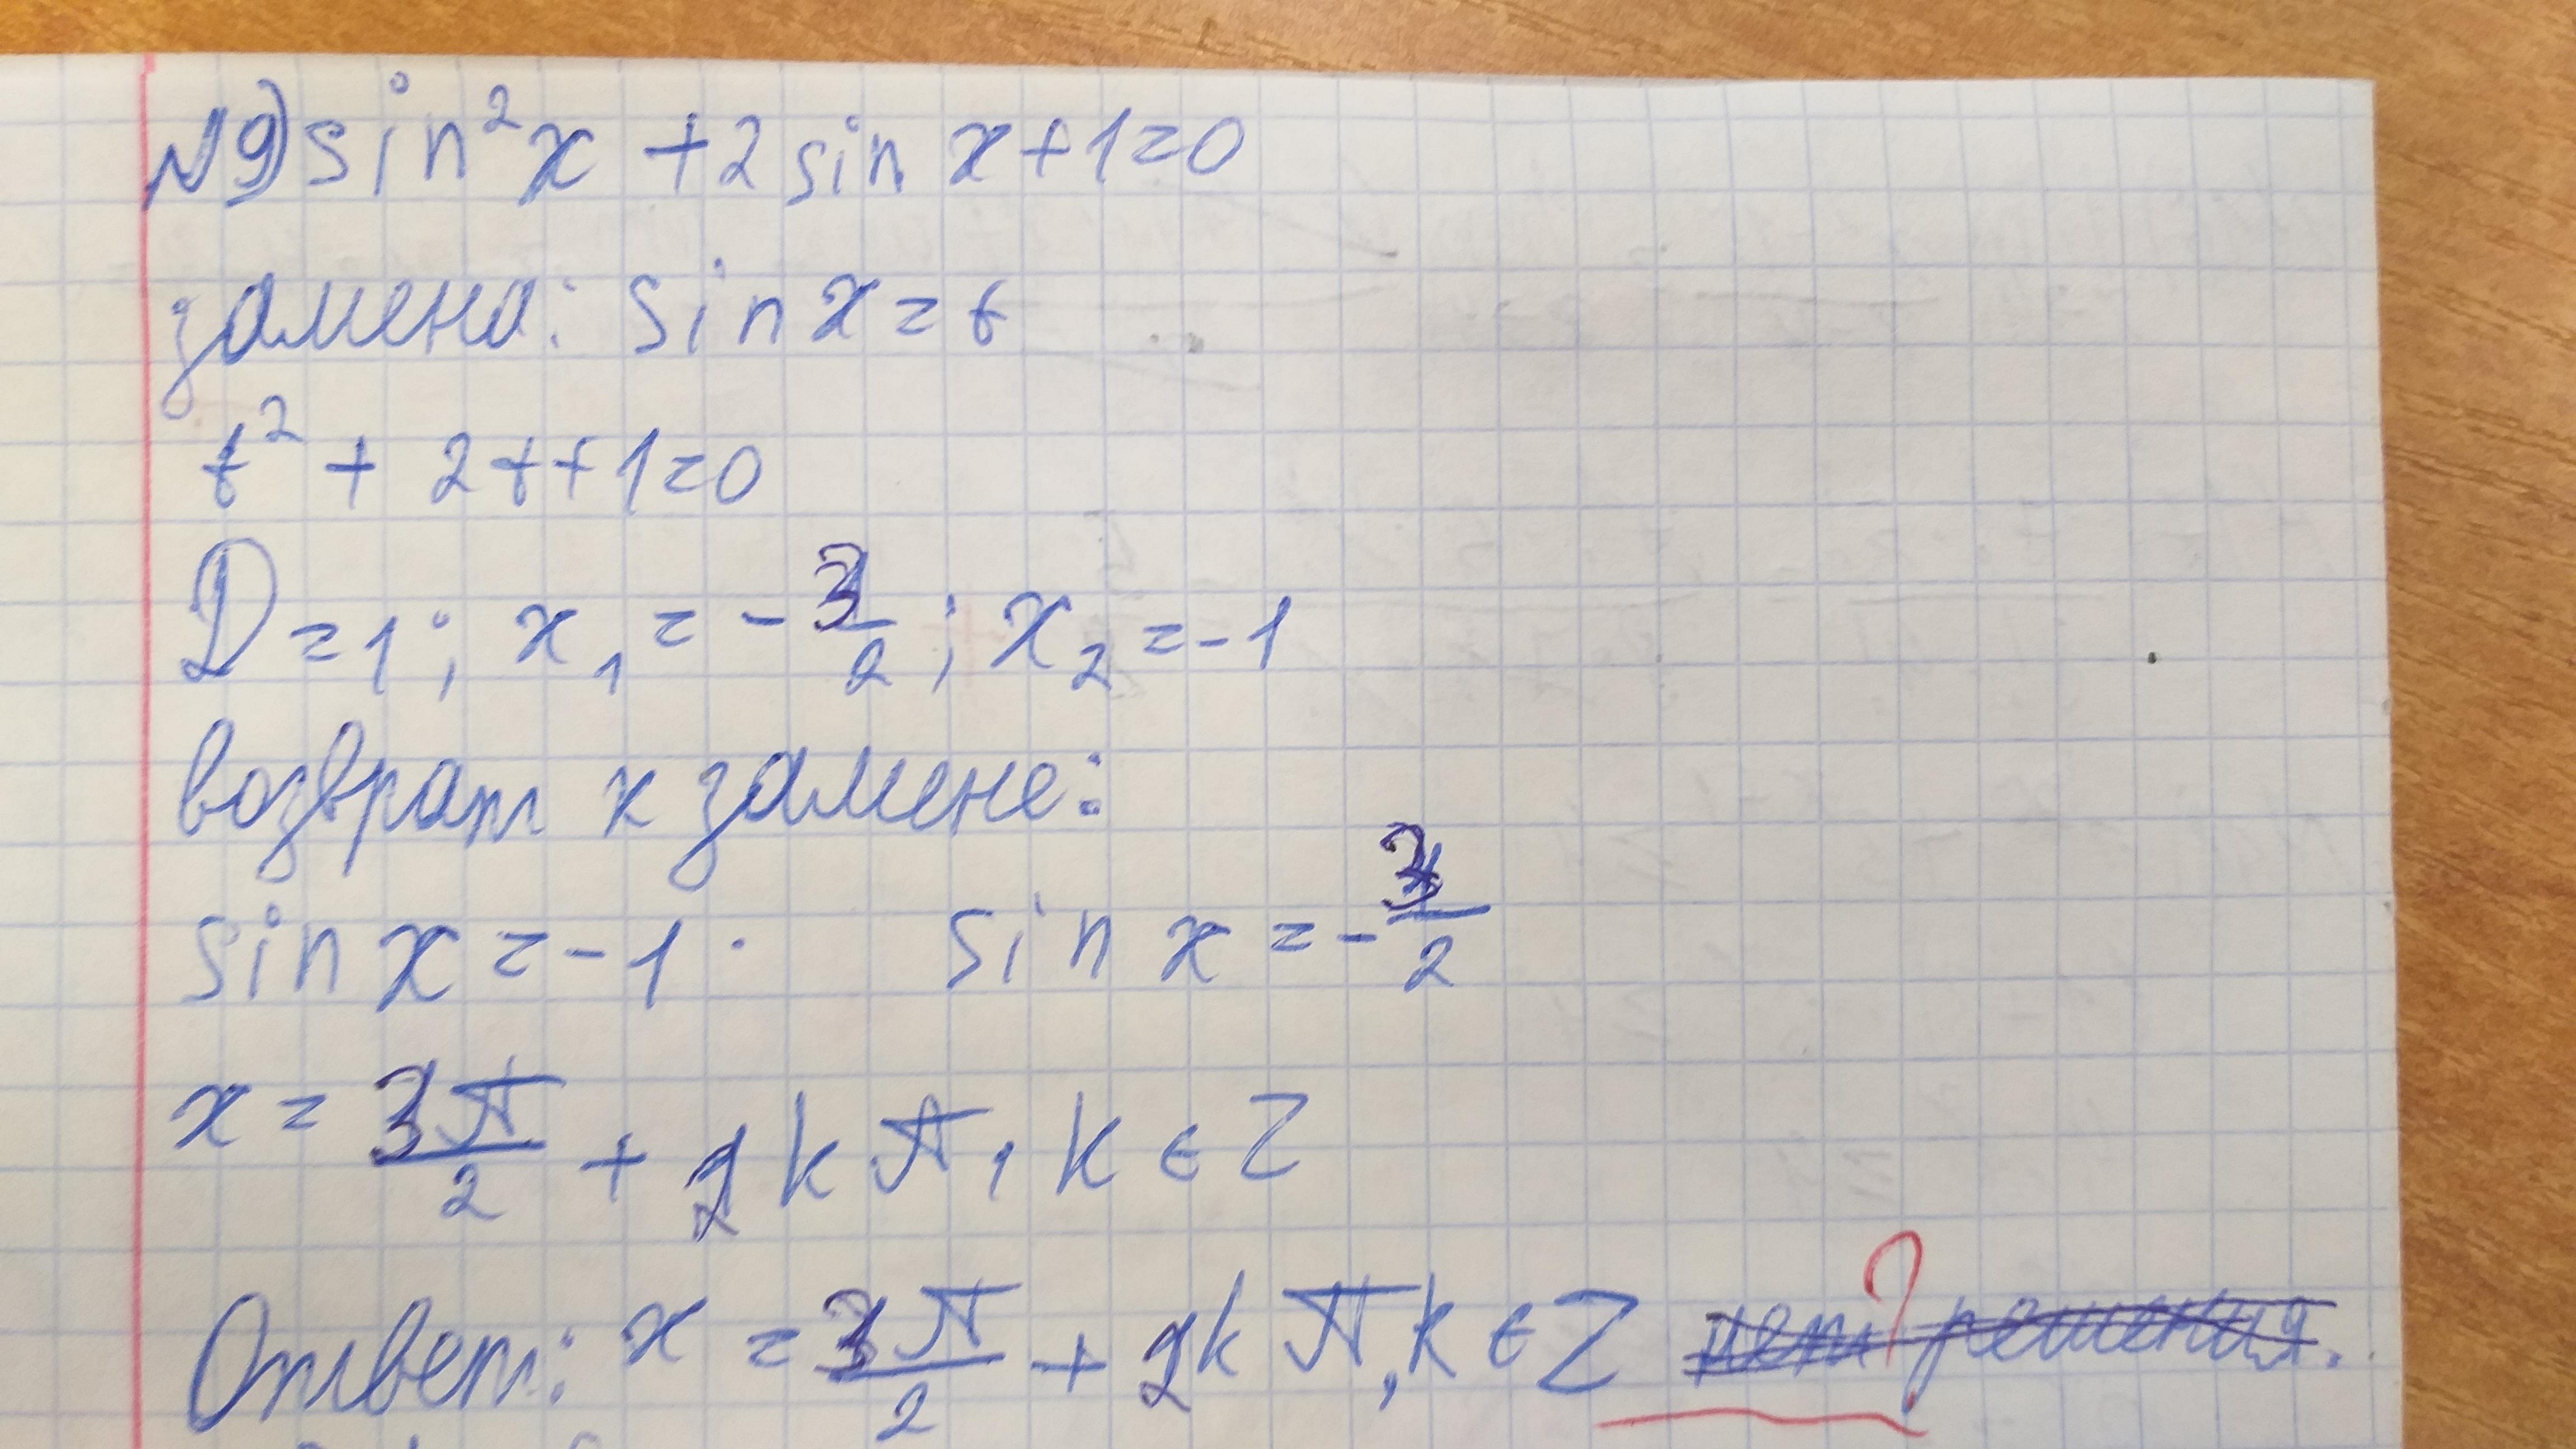 №9) sin²x + 2 sin x + 1 = 0
замена: sin x = t
t² + 2t + 1 = 0
D = 1; x₁ = -3/2; x₂ = -1
возврат к замене:
sin x = -1 · sin x = -3/2
x = 3π/2 + 2kπ, k ∈ Z
Ответ: x = 3π/2 + 2kπ, k ∈ Z нет решения. ?